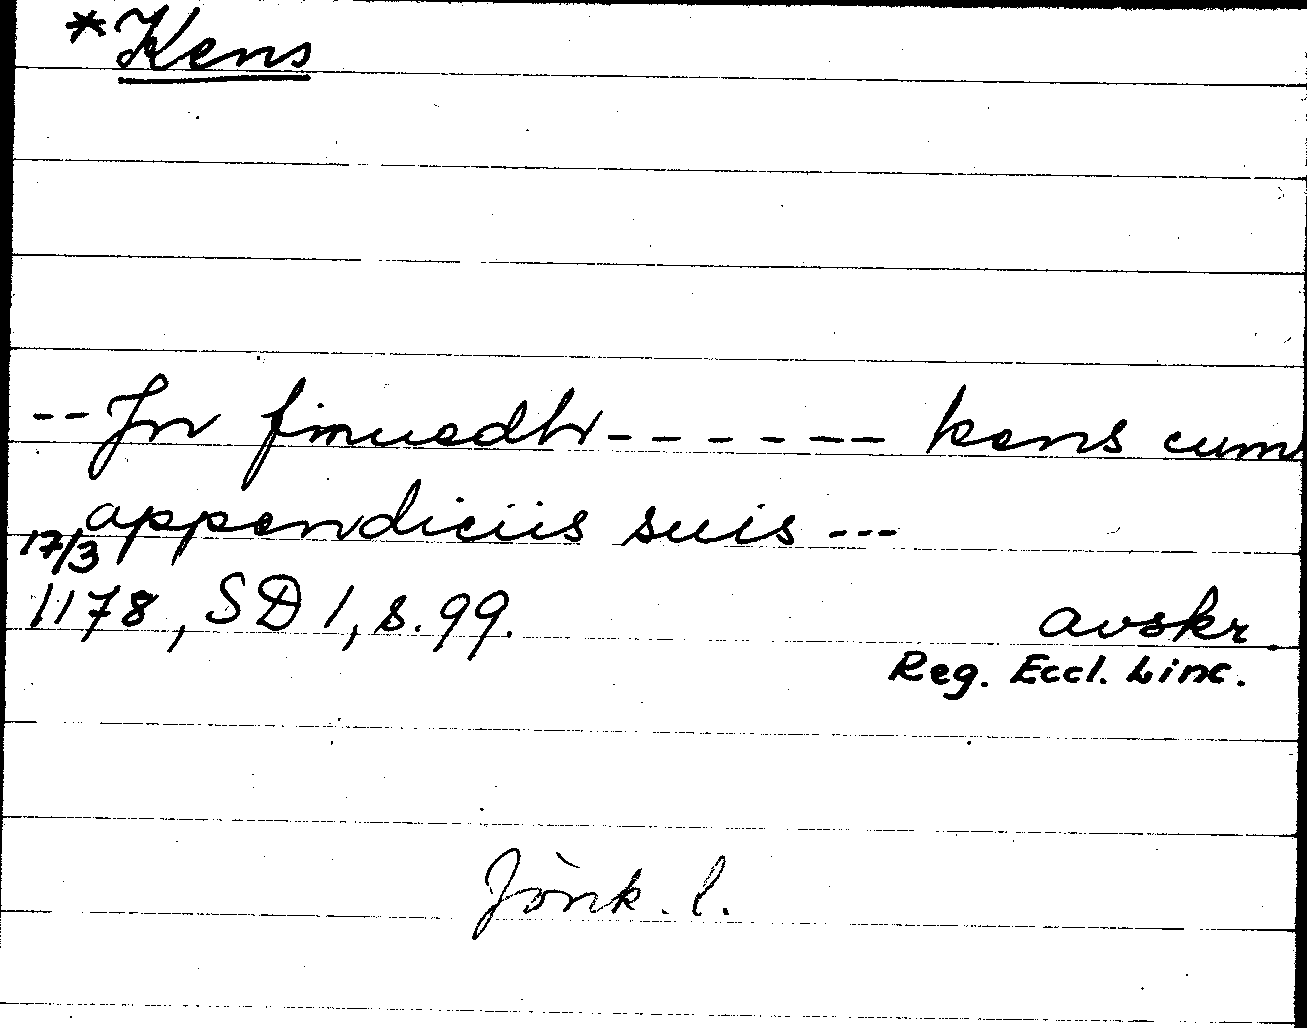 *Kens
--Jn finuedhr------- kens cum
appendiciis suis ---
17/3
1178, SD 1, s. 99. avskr.
Reg. Eccl. Linc.
Jönk. l.